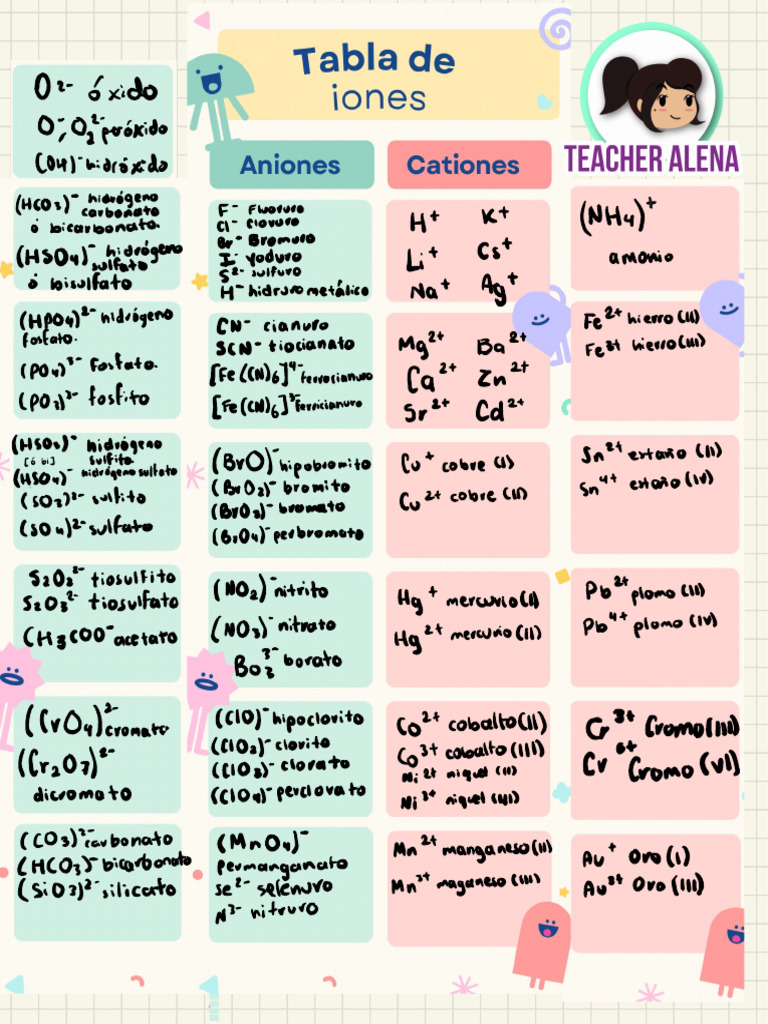 Tabla de
iones
TEACHER ALENA
Aniones
Cationes
O²⁻ óxido
O⁻; O₂²⁻ peróxido
(OH)⁻ hidróxido
(HCO₃)⁻ hidrógeno
carbonato
ó bicarbonato.
(HSO₄)⁻ hidrógeno
sulfato
ó bisulfato
(HPO₄)²⁻ hidrógeno
fosfato.
(PO₄)³⁻ fosfato.
(PO₃)³⁻ fosfito
(HSO₃)⁻ hidrógeno
[ó bi] sulfito
(HSO₄)⁻ hidrógeno sulfato
(SO₃)²⁻ sulfito
(SO₄)²⁻ sulfato
S₂O₂²⁻ tiosulfito
S₂O₃²⁻ tiosulfato
CH₃COO⁻ acetato
(CrO₄)²⁻ cromato
(Cr₂O₇)²⁻
dicromato
(CO₃)²⁻ carbonato
(HCO₃)⁻ bicarbonato
(SiO₃)²⁻ silicato
F⁻ Fluoruro
Cl⁻ cloruro
Br⁻ Bromuro
I⁻ yoduro
S²⁻ sulfuro
H⁻ hidruro metálico
CN⁻ cianuro
SCN⁻ tiocianato
[Fe(CN)₆]⁴⁻ ferrocianuro
[Fe(CN)₆]³⁻ ferricianuro
(BrO)⁻ hipobromito
(BrO₂)⁻ bromito
(BrO₃)⁻ bromato
(BrO₄)⁻ perbromato
(NO₂)⁻ nitrito
(NO₃)⁻ nitrato
BO₃³⁻ borato
(ClO)⁻ hipoclorito
(ClO₂)⁻ clorito
(ClO₃)⁻ clorato
(ClO₄)⁻ perclorato
(MnO₄)⁻
permanganato
Se²⁻ selenuro
N³⁻ nitruro
H⁺ K⁺
Li⁺ Cs⁺
Na⁺ Ag⁺
Mg²⁺ Ba²⁺
Ca²⁺ Zn²⁺
Sr²⁺ Cd²⁺
Cu⁺ cobre (I)
Cu²⁺ cobre (II)
Hg⁺ mercurio(I)
Hg²⁺ mercurio (II)
Co²⁺ cobalto(II)
Co³⁺ cobalto(III)
Ni²⁺ niquel (II)
Ni³⁺ niquel (III)
Mn²⁺ manganeso(II)
Mn³⁺ maganeso (III)
(NH₄)⁺
amonio
Fe²⁺ hierro (II)
Fe³⁺ hierro(III)
Sn²⁺ estaño (II)
Sn⁴⁺ estaño (IV)
Pb²⁺ plomo (II)
Pb⁴⁺ plomo (IV)
Cr³⁺ Cromo(III)
Cr⁶⁺ Cromo (VI)
Au⁺ Oro (I)
Au³⁺ Oro (III)